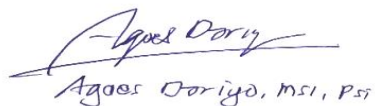 Agoes Dariy
Agoes Dariyo, MSi, Psi